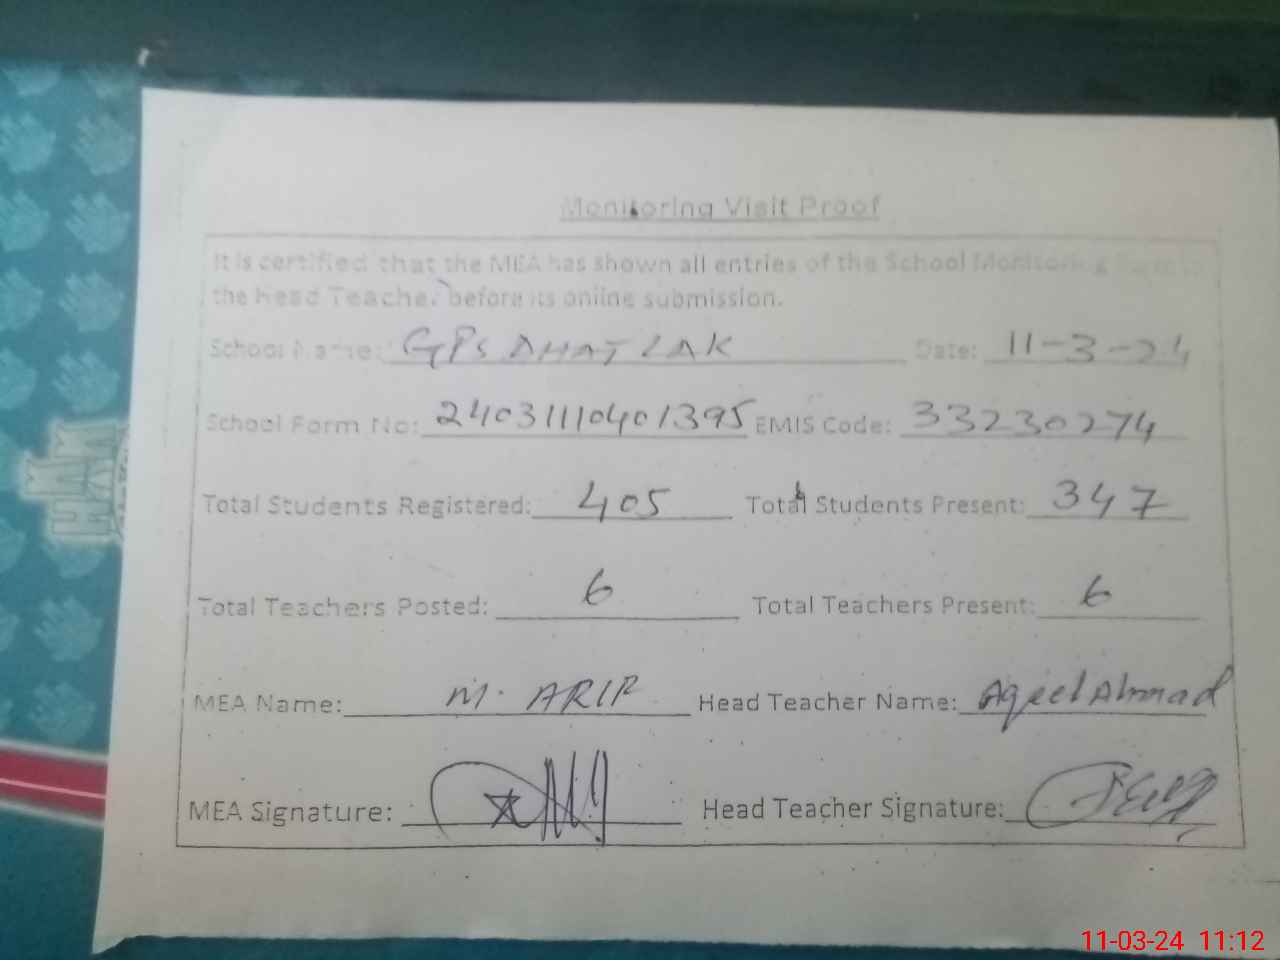 Monitoring Visit Proof
It is certified that the MEA has shown all entries of the School Monitoring Form to
the Head Teacher before its online submission.
School Name: GPS DHAT LAK Date: 11-3-24
School Form No: 240311110401395 EMIS Code: 33230274
Total Students Registered: 405 Total Students Present: 347
Total Teachers Posted: 6 Total Teachers Present: 6
MEA Name: M. ARIF Head Teacher Name: Aqeel Ahmad
MEA Signature: Head Teacher Signature:
11-03-24 11:12